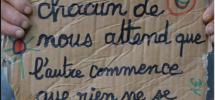 chacun de
nous attend que
l'autre commence
que rien ne se